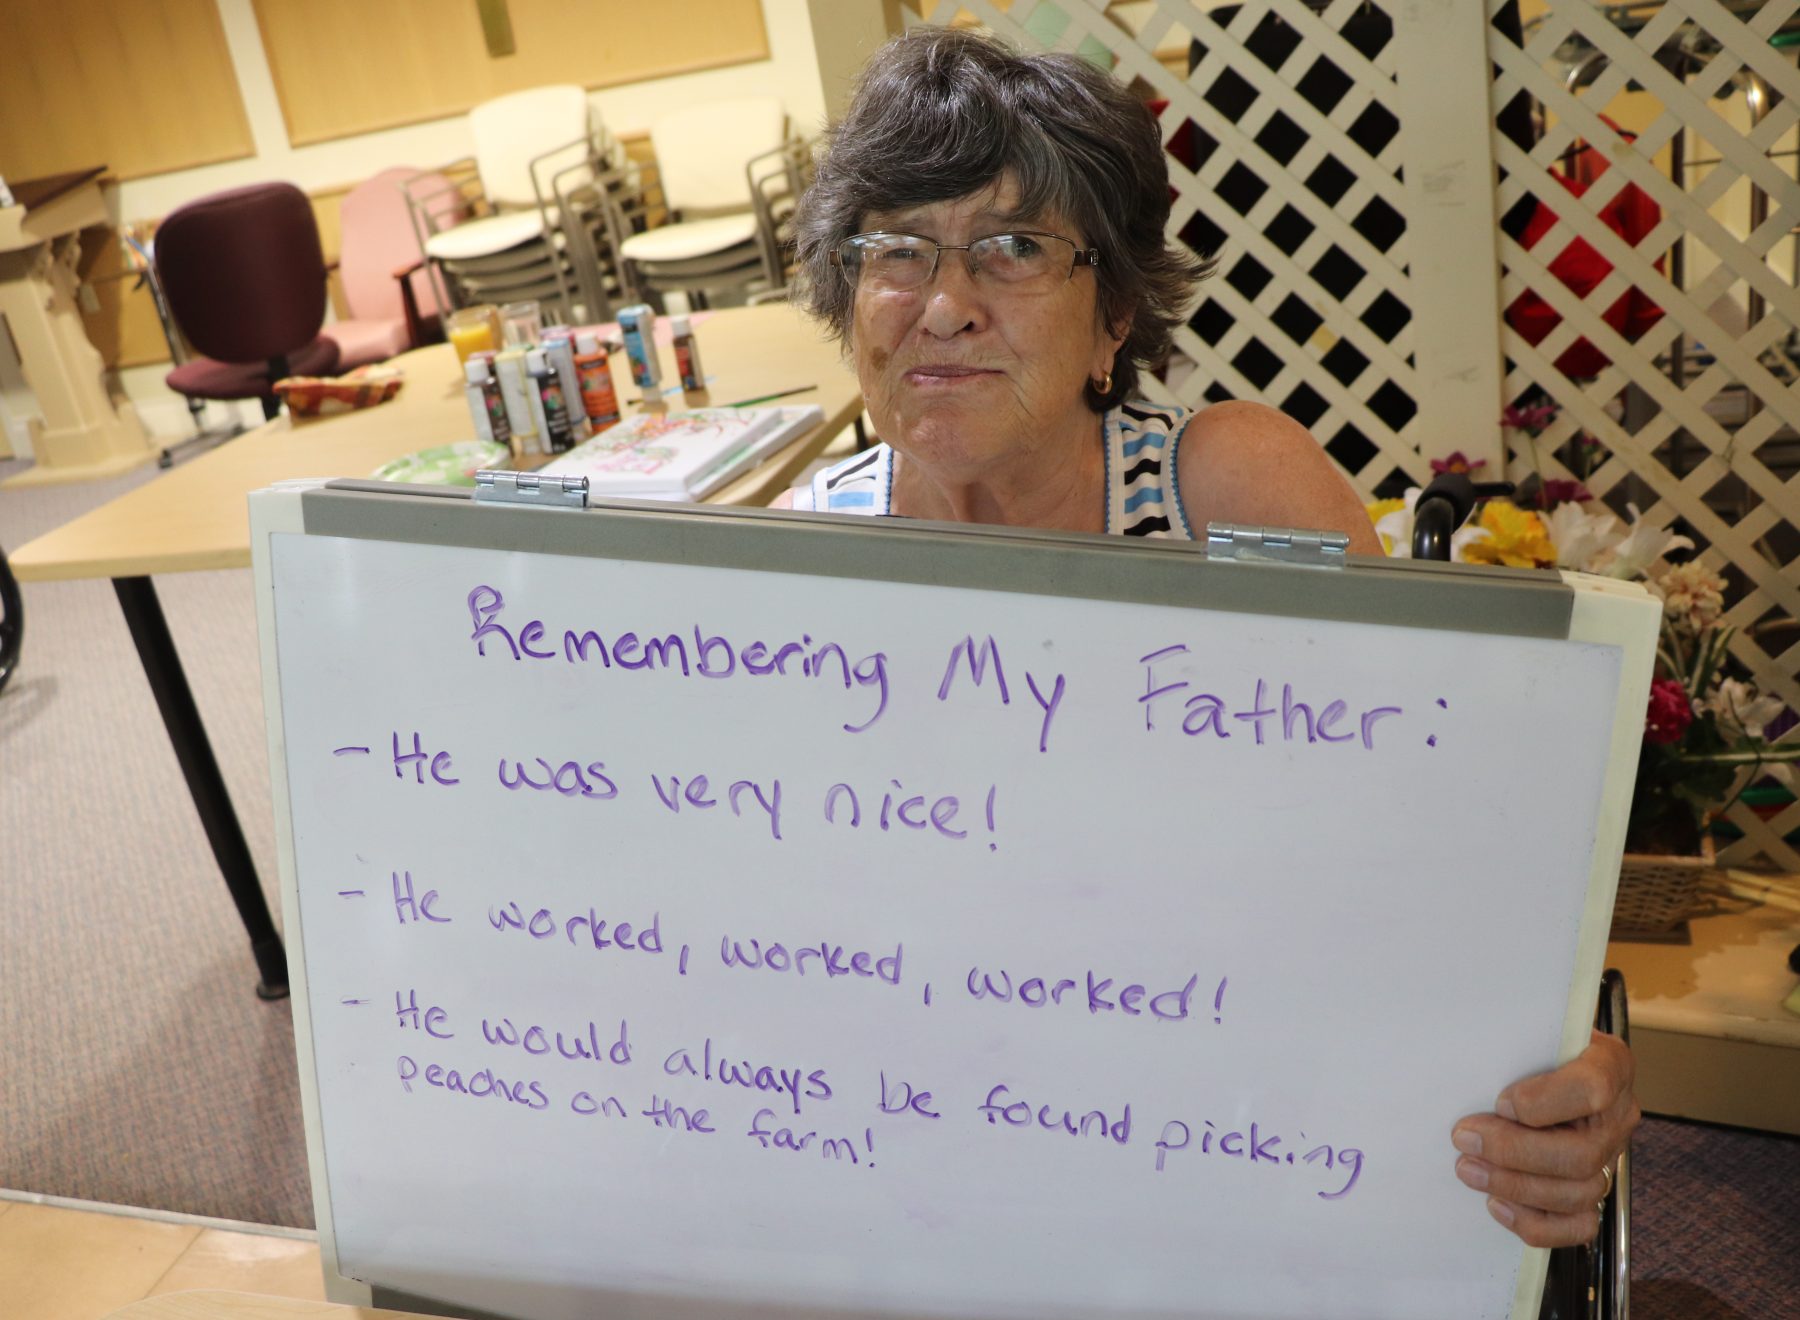 Remembering My Father:
- He was very nice!
- He worked, worked, worked!
- He would always be found picking
peaches on the farm!